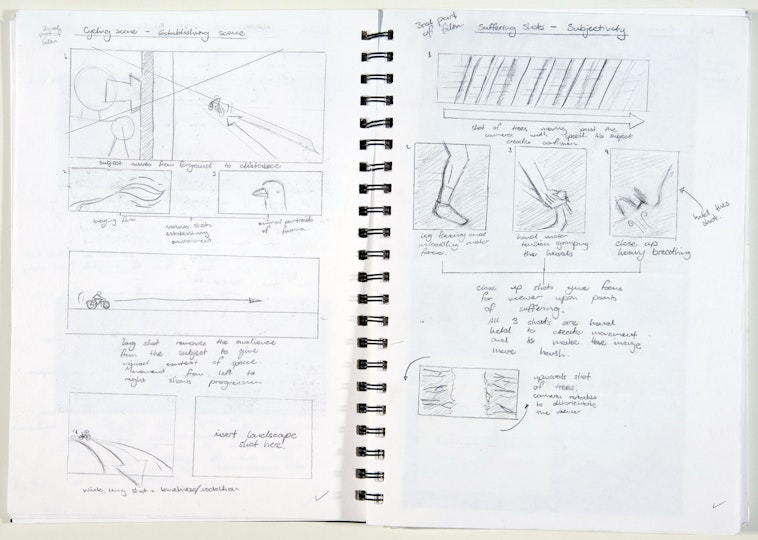 2nd
part of
film
Cycling scene - Establishing scene
1
subject moves from foreground to distance
2
3
various shots
establishing
environment
animal portraits
of fauna
long shot removes the audience
from the subject to give
visual context of space.
Movement from left to
right shows progression
insert landscape
shot here.
Wide, long shot = loneliness/isolation
3rd part
of film
Suffering shots - Subjectivity
1
shot of trees moving past the
camera with speed. No subject
creates confusion.
2
3
4
held
shot.
leg flexing and
under
force.
hand under
tension gripping
the
close up
heavy breathing
close up shots give focus
for viewer upon points
of suffering.
All 3 shots are hand
held to create movement
and to make the image
more harsh.
upwards shot
of trees.
camera rotates
to disorientate
the viewer